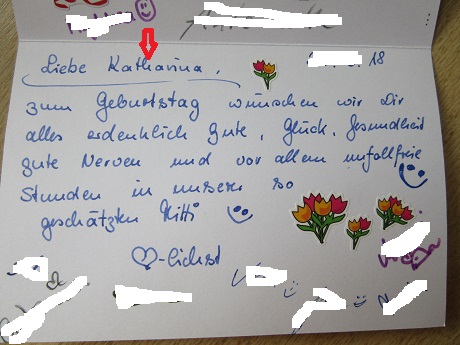 18
Liebe Katharina,
zum Geburtstag wünschen wir Dir
alles erdenklich Gute, Glück, Gesundheit
gute Nerven und vor allem unfallfreie
Stunden in unserer so
geschätzten Kitti
♡-lichst